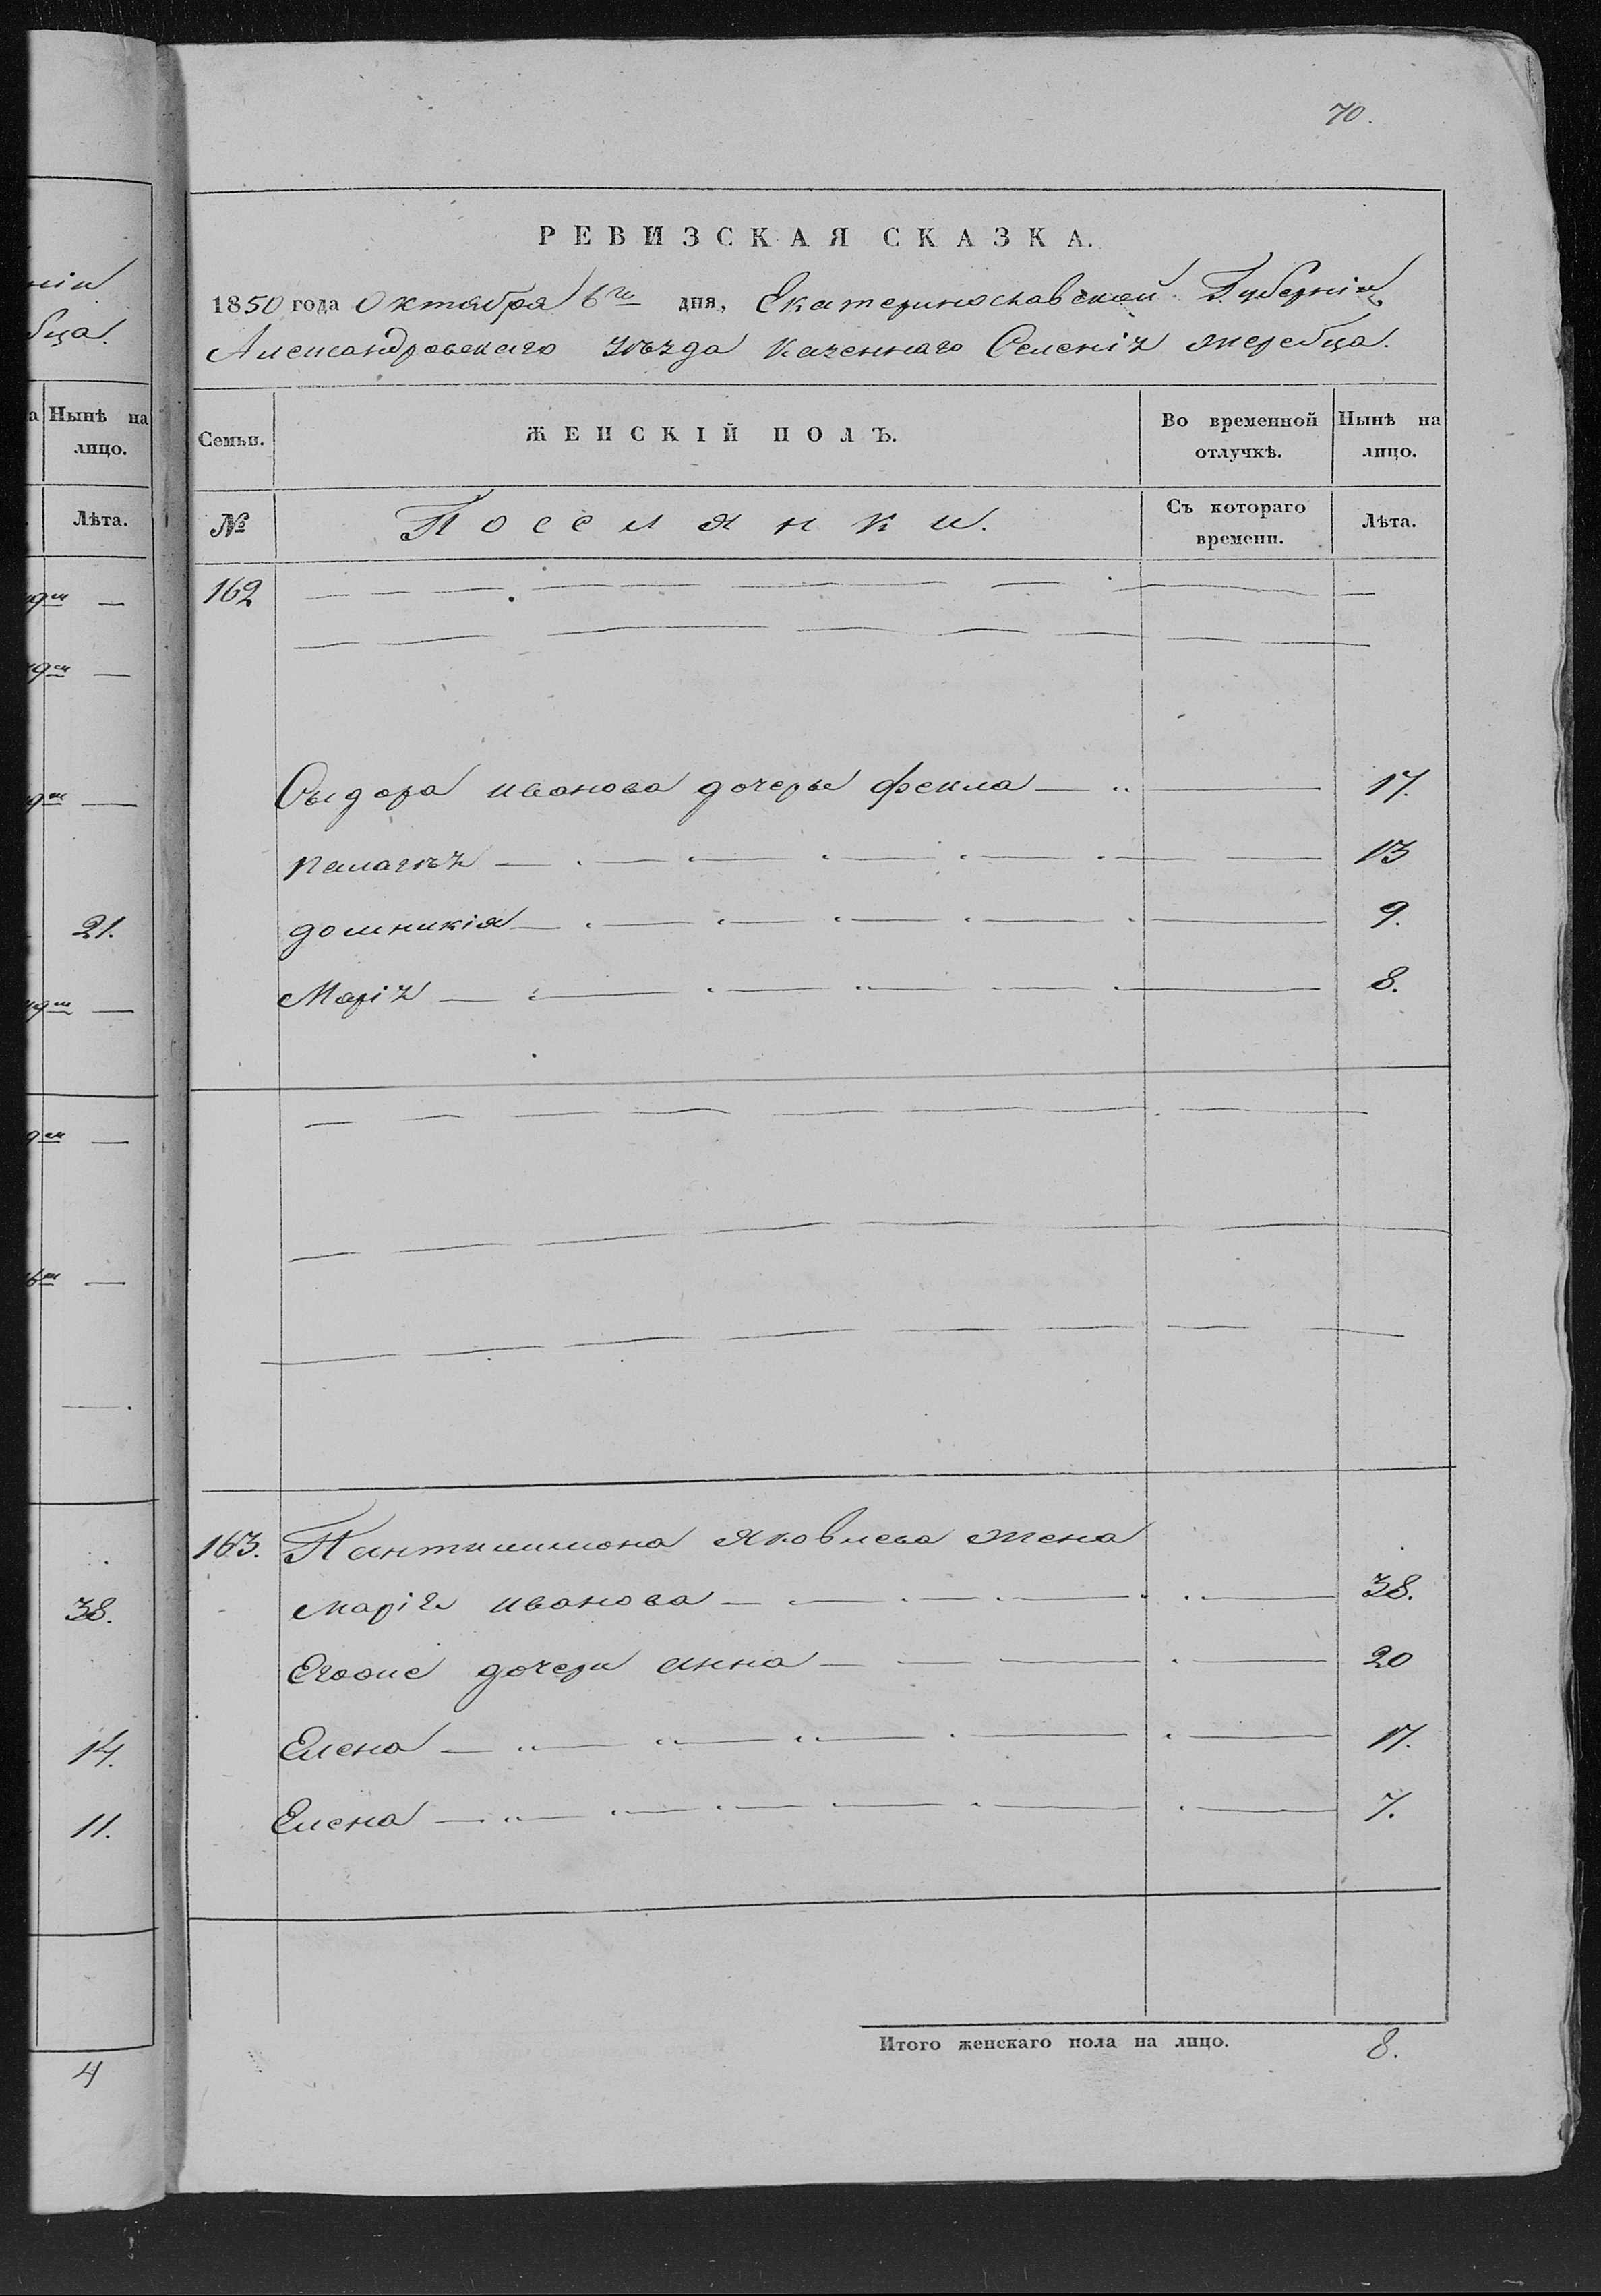 70.
РЕВИЗСКАЯ СКАЗКА.
1850 года Октября 6го дня, Екатеринославской Губерніи
Александровскаго уѣзда Казеннаго Селенія жеребца.
Семьи. ЖЕНСКІЙ ПОЛЪ. Во временной отлучкѣ. Нынѣ на лицо.
№ Поселянки. Съ котораго времени. Лѣта.
162
Сыдора иванова дочеры фекла 17.
палагѣя 13
домникія 9.
Марія 8.
163. Пантилимона Яковлева жена
марія иванова 38.
Егоже дочери анна 20
Елена 17.
Елена 7.
Итого женскаго пола на лицо. 8.
ніи
бца.
а Нынѣ на
лицо.
Лѣта.
21.
38.
14.
11.
4